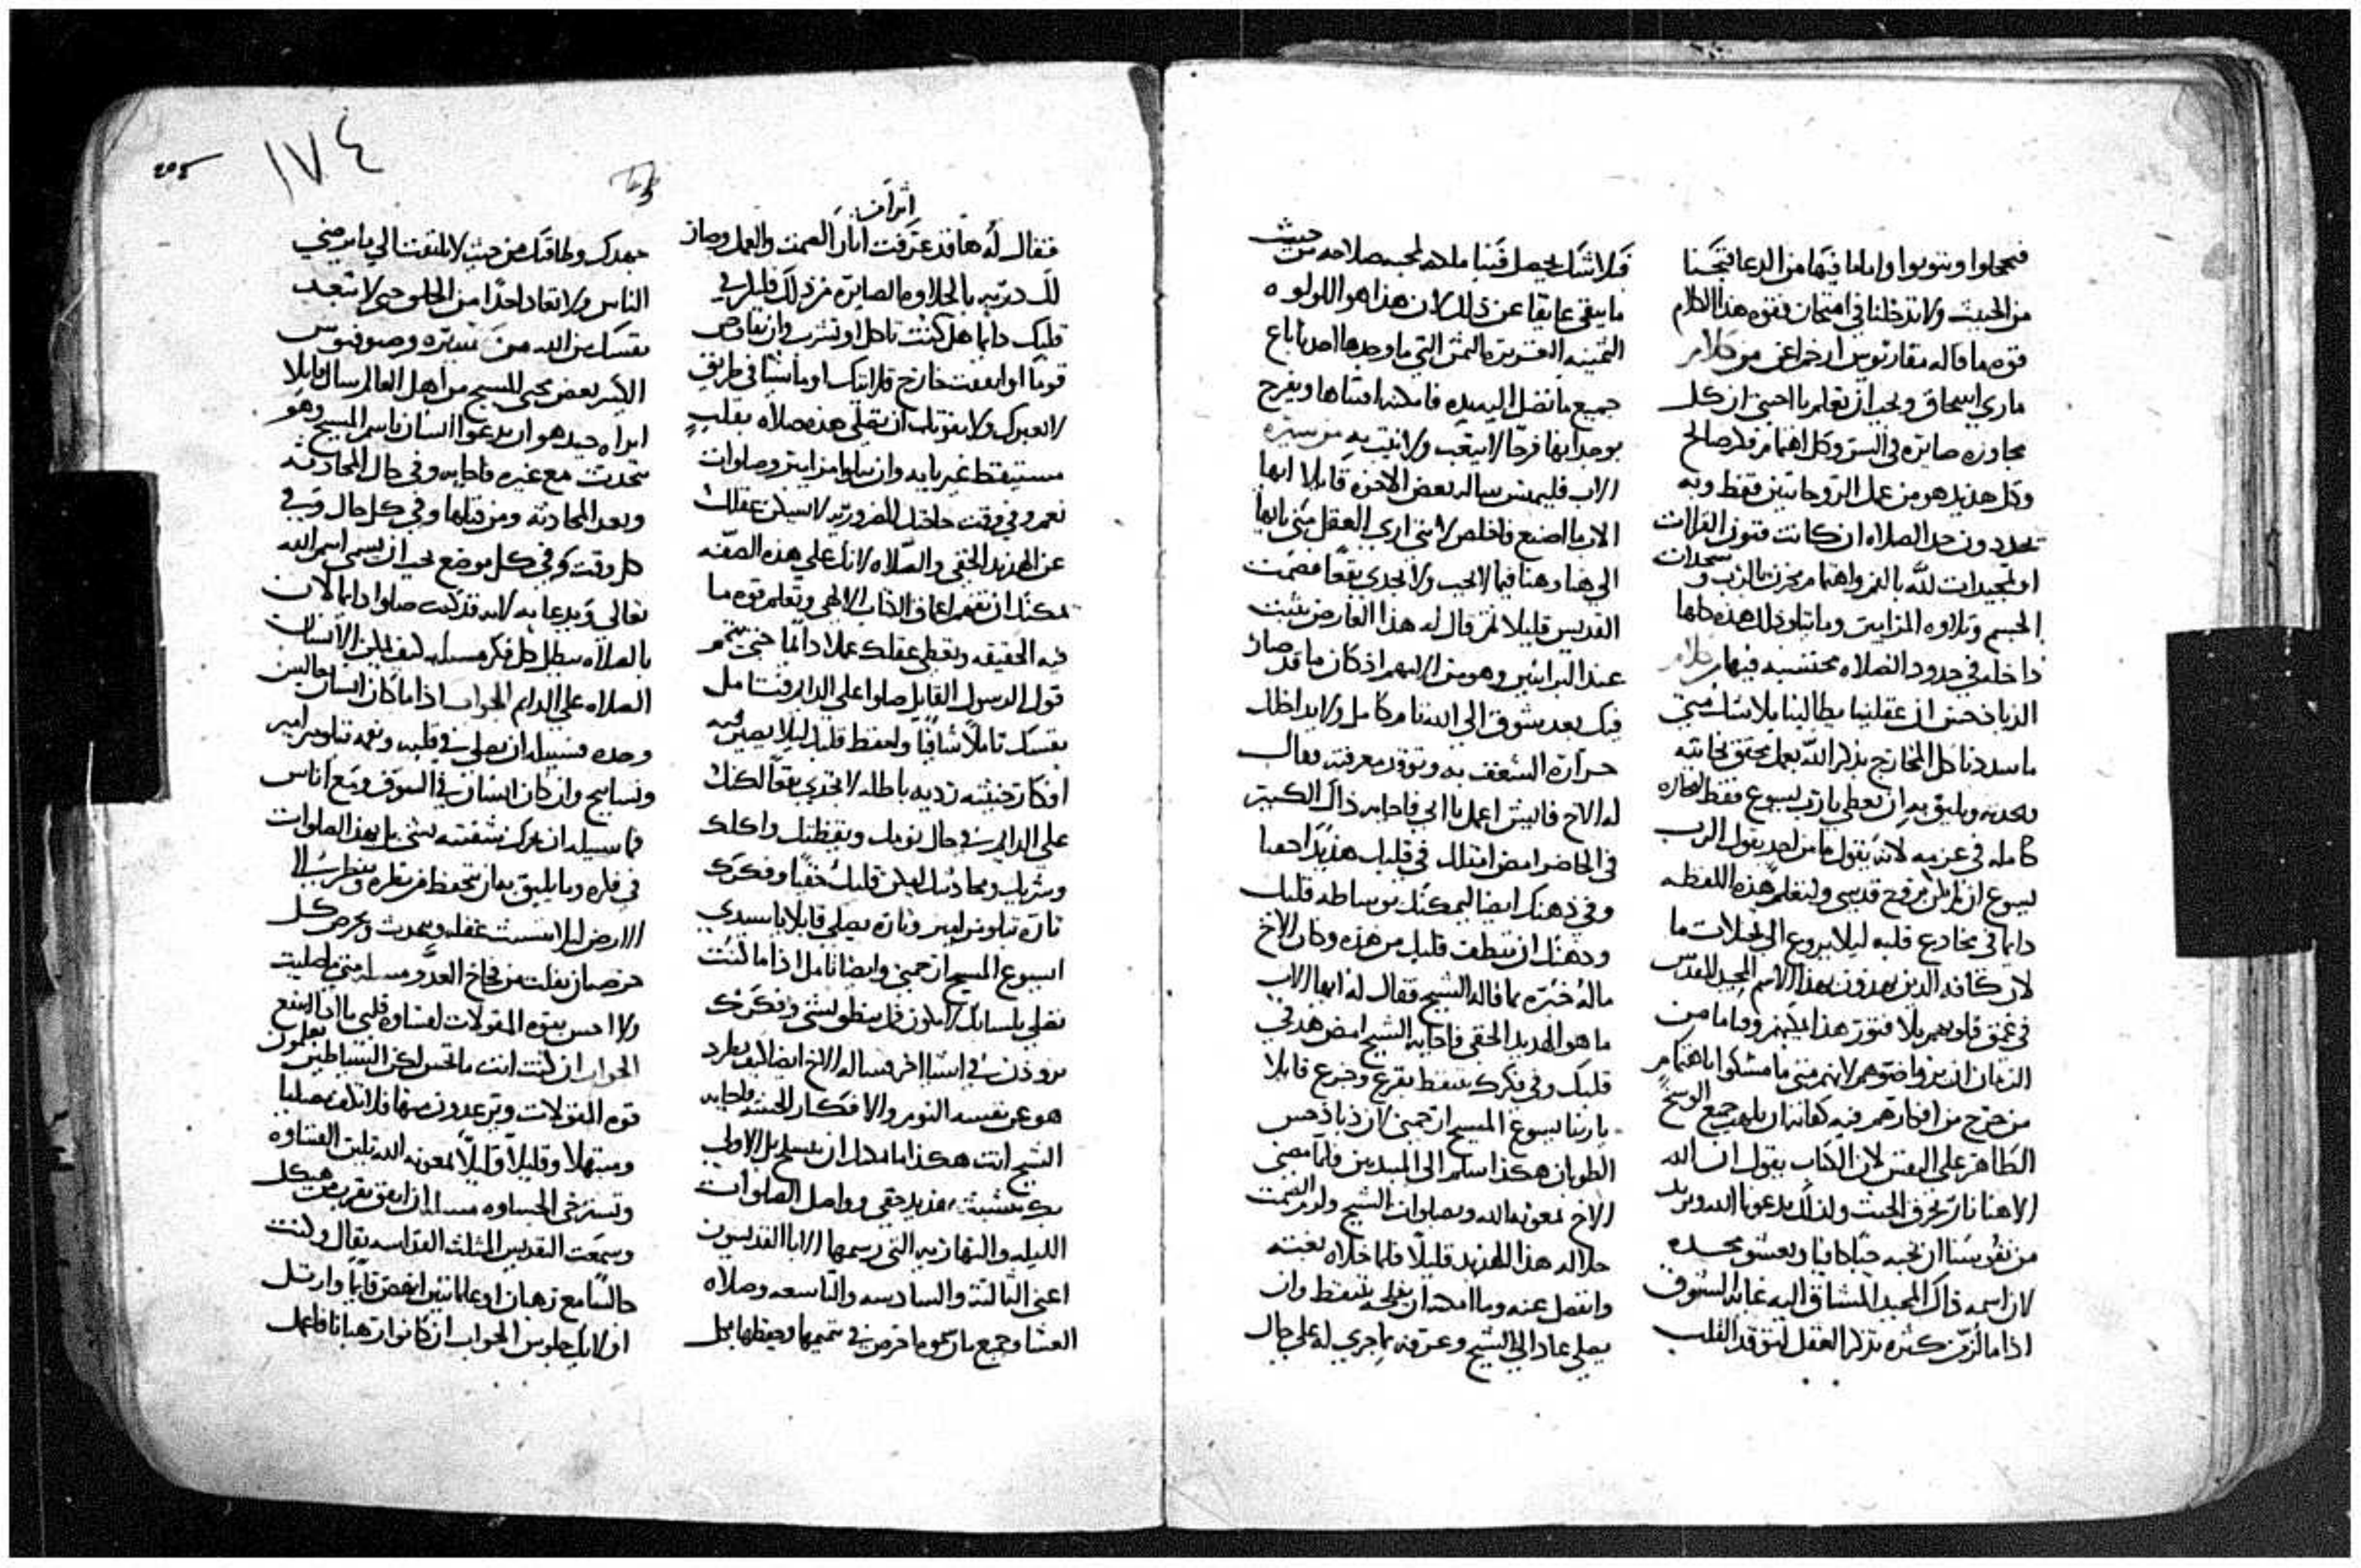 فيخجلوا ويتوبوا واما ما فيها من الدعا فنجنا
من الخبيث ولا تدخلنا في امتحان فقوه هذا الكلام
قوه ما قاله مقاريوس ارحم اعني من كلام
ماري اسحاق ويجب ان تعلم يا اخي ان كل
محاوره صايره في السر وكل اهتمام فكر صالح
وكل هذيذ هو من عمل الروحانيين فقط وبه
يحددون حد الصلاه ان كانت فنون القراات
او تمجيدات لله بالفم واهتمام بحزن بالرب وسجدات
الجسم وتلاوه المزامير وما يتلو ذلك هذه كلها
داخله في حدود الصلاه محتسبه فيها من كلام
الذياذخس ان عقلنا يطالبنا بلا شك متى
ما سددنا كل المخارج بذكر الله بعمل محقق نجاته
ويليق به ان يعطي يا رب يسوع فقط
كامله في عزمه لانه يقول ما من احد يقول الرب
يسوع ان لم يكن بروح قدسي ولنعلم هذه اللفظه
دايما في مخادع قلبه ليلا يروغ الى تخيلات ما
لان كافه الذين يهذون بهذا الاسم المجيد المقدس
في عمق قلوبهم بلا فتور هذا يمكنهم وقاما من
الزمان ان ينيروا ضوهم لانهم متى ما مسكوا باهتمام
من خرج من افكارهم فيه كفايه ان يلهب جميع الوسخ
الظاهر على النفس لان الكتاب يقول ان الله
الاهنا نار تحرق الخبث ولذلك يدعونا الله ويريد
من نفوسنا ان نحبه حبا كافيا ونعشق مجده
لان اسمه ذاك المجيد المشتاق اليه غايه الشوق
اذا ما لزم كثره تذكر العقل لتوقد القلب
فلا شك يحصل فينا ملكه لمحبه صلاحه من حيث
ما يبقى عايقا عن ذلك لان هذا هو اللولوه
الثمينه العزيزه الثمن التي ما وجدها احد باع
جميع ما تصل اليه يده فامكنه اقتناها ويفرح
بوجدانها فرحا لا يتعب ولا
الاب فليمش ساله بعض الاخوه قايلا ايها
الاب ما اصنع فاخلص لانني ارى العقل مني تايها
الى هنا وهنا فيما لا يجب ولا يجدي نفعا فصمت
القديس قليلا ثم قال له هذا العارض يثبت
عند البرانيين وهو من الاليهم اذ كان ما قد صار
فيك بعد بشوق الى الله تام كامل ولا بداخلك
حراره الشغف به وتوقد معرفته فقال
له الاخ فايش اعمل يا ابي فاجابه ذاك الكبير
في الحاضر امض امتلك في قلبك هذيذا خفيا
وفي ذهنك ايضا ليمكنك بوساطه قلبك
وذهنك ان تنظف قلبك من هذه وكان الاخ
ماله خبره بما قاله الشيخ فقال له ايها الاب
ما هو الهذيذ الخفي فاجابه الشيخ امض هذ في
قلبك وفي فكرك بتيقظ بفزع وجزع قايلا
يا ربنا يسوع المسيح ارحمني لان ذياذخس
الطوبان هكذا اسلم الى المبتدين فلما مضى
الاخ بمعونه الله وبصلوات الشيخ ولزم الصمت
حلا له هذا الهذيذ قليلا فلما حلاه بغته
وانفصل عنه وما امكنه ان يعمله بتيقظ وان
يصلي عاد الى الشيخ وعرفه ما جرى له على حال
١٧٤
٢٥٤
اثرات
فقال له ها قد عرفت اثار الصمت والعمل وصار
لك دربه بالحلاوه الصايره من ذلك فليكن في
قلبك دايما هل كنت تاكل او تشرب وان تفاوض
قوما او اتفقت خارج قلايتك او ماشيا في طريق
لا تعبرك ولا يفوتك ان تصلي هذه صلاه بقلب
مستيقظ غير تايه وان تتلوا مزامير وصلوات
نعم وفي وقت حاجتك الضروريه لا يسكن عقلك
عن الهذيذ الخفي والصلاه لانك على هذه الصفه
يمكنك ان تفهم اعماق الكتاب الالهي وتعلم قوه ما
فيه الحقيقه وتعطي عقلك عملا دايما حتى تتمم
قول الرسول القايل صلوا على الدايم فتتامل
نفسك تاملا شافيا وتحفظ قلبك ليلا يصير فيه
افكار خبيثه رديه باطله لا تجدي نفعا لكنك
على الدايم في حال نومك ويقظتك واكلك
وشربك ومحادثتك ليكن قلبك خفيا وفكرك
تاره تتلو مزامير وتاره يصلي قايلا يا سيدي
ايسوع المسيح ارحمني وايضا تامل اذا ما كنت
تصلي بلسانك لا يكون فمك ينطق بشي وفكرك
بروذن في اشيا اخر فساله الاخ ايضا كيف يطرد
هو عن نفسه النوم والافكار الخبيثه فاجابه
الشيخ انت هكذا ما يمكنك ان تتسلح بل الاولى
بك تتشبث بهذيذ خفي وواصل الصلوات
الليليه والنهاريه التي رسمها الابا القديسون
اعني الثالثه والسادسه والتاسعه وصلاه
العشا وجميع ما رسموه احرص في تتميمها وحفظها بكل
جهدك وطاقتك من حيث لا تلتفت الى ما يرضي
الناس ولا تعاد احدا من الخلق حتى لا تبعد
نفسك من الله من تستره وصوفنوس
الاثير بعض محبي المسيح من اهل العالم سال قايلا
ابراه جيد هو ان يدعوا انسان باسم المسيح وهو
يتحدث مع غيره فاجابه وفي حال المحادثه
وبعد المحادثه ومن قبلها وفي كل حال وفي
كل وقت وفي كل موضع يجب ان يسمي اسم الله
تعالى ويدعا به لانه قد كتب صلوا دايما لان
بالصلاه يبطل كل فكر مساله كيف يمكن الانسان
الصلاه على الدايم الجواب اذا ما كان انسان جالس
وحده فسبيله ان يصلي في قلبه وفمه تتلو مزامير
وتسابيح وان كان انسان في السوق ومع اناس
فما سبيله ان يحرك شفتيه بشي بل بهذا الصلوات
في فكره وما يليق به ان يتحفظ من نظره وينظر الى
الارض ليلا يتشتت عقله ويحدث ويحرص كل
حرصه ان يفلت من فخاخ العدو مساله متى ما صليت
ولا احس بقوه المقولات لقساوه قلبي ما النفع
الجواب ان كنت انت ما تحس لكن الشياطين يعلمون
قوه المقولات ويرتعدون منها فلا تكف مصليا
ومبتهلا وقليلا قليلا بمعونه الله تلين القساوه
وتسترخي الجساوه مساله ان اتفق بقرب من هيكل
وسمعت التقديس المثلث القداسه يقال وكنت
جالسا مع رهبان او علمانيين انهض قايما وارتل
او لا بل جلوس الجواب ان كانوا رهبانا فاعمل